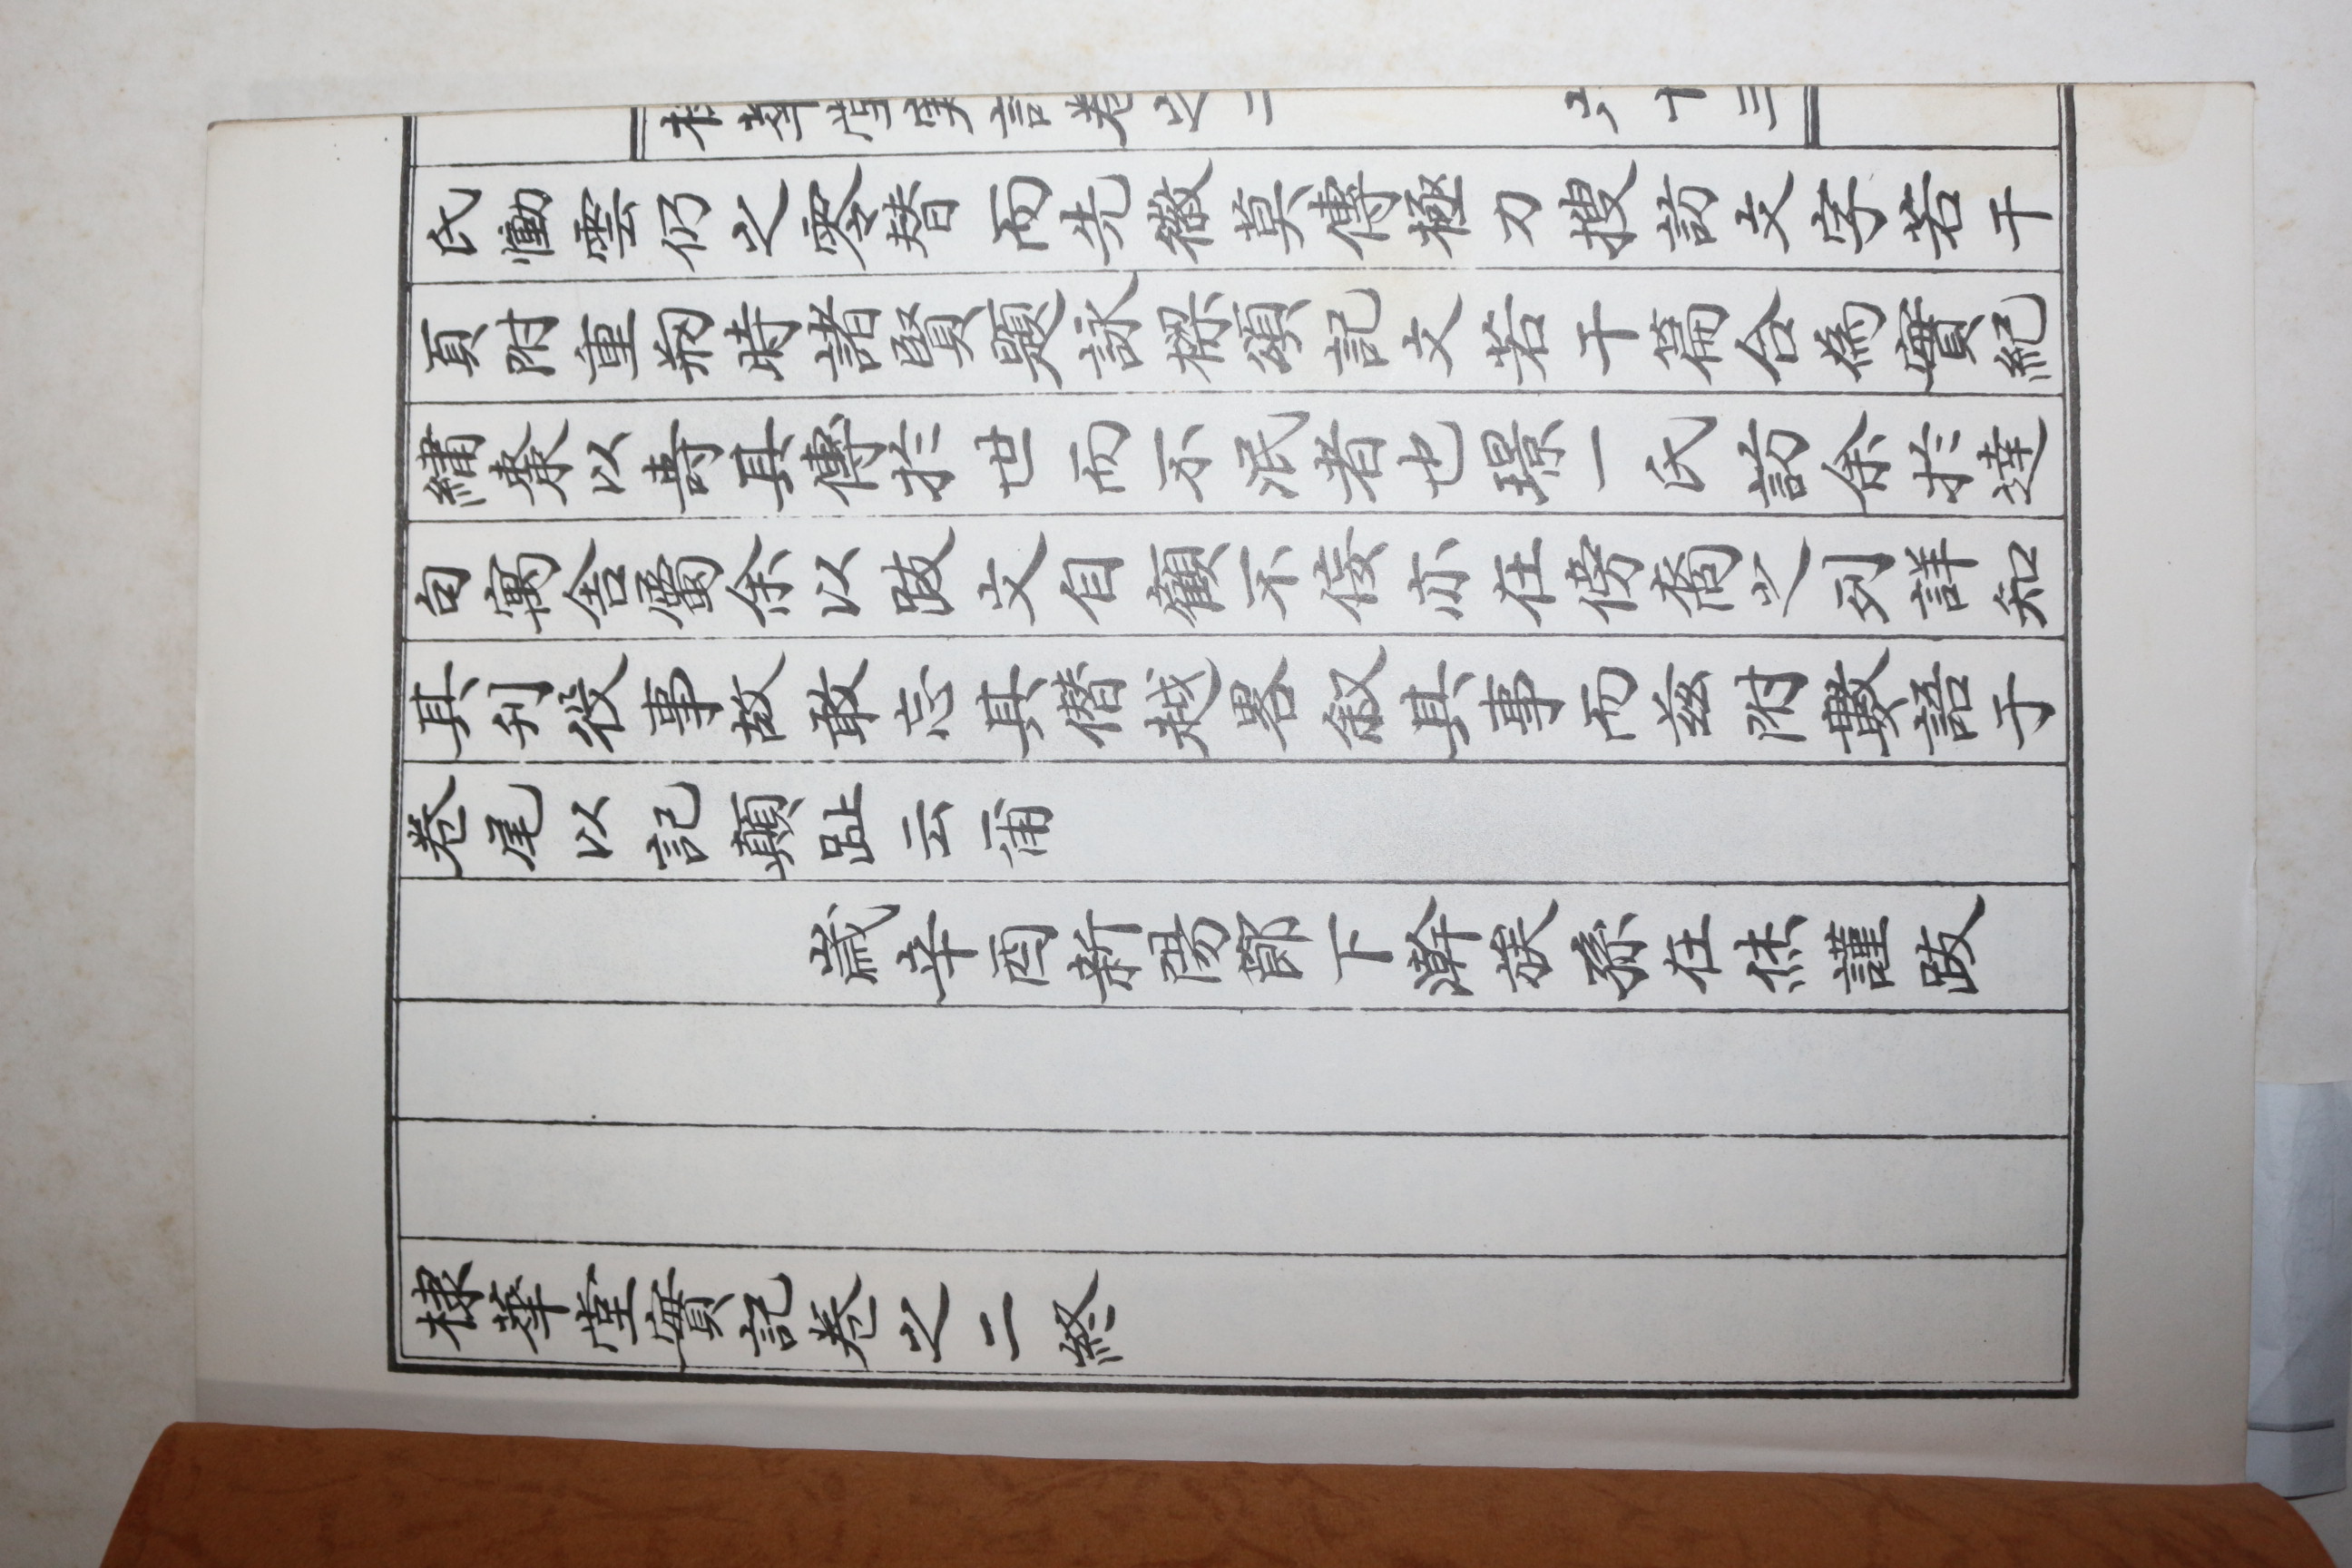 棣華堂實記卷之二 六十三
氏慟雲仍之零替而先徽莫傳極力搜訪文字若干
頁附重刱時諸賢題詠樑頌記文若干篇合為實紀
繡棗以壽其傳於世而不泯者也璟一氏訪余於達
句寓舍屬余以跋文自顧不侫亦在傍裔之列詳知
其刊役事故敢忘其僭越畧叙其事而兹附數語于
卷尾以記顛趾云爾
歲辛酉新陽節下澣族孫在烋謹跋
棣華堂實記卷之二終